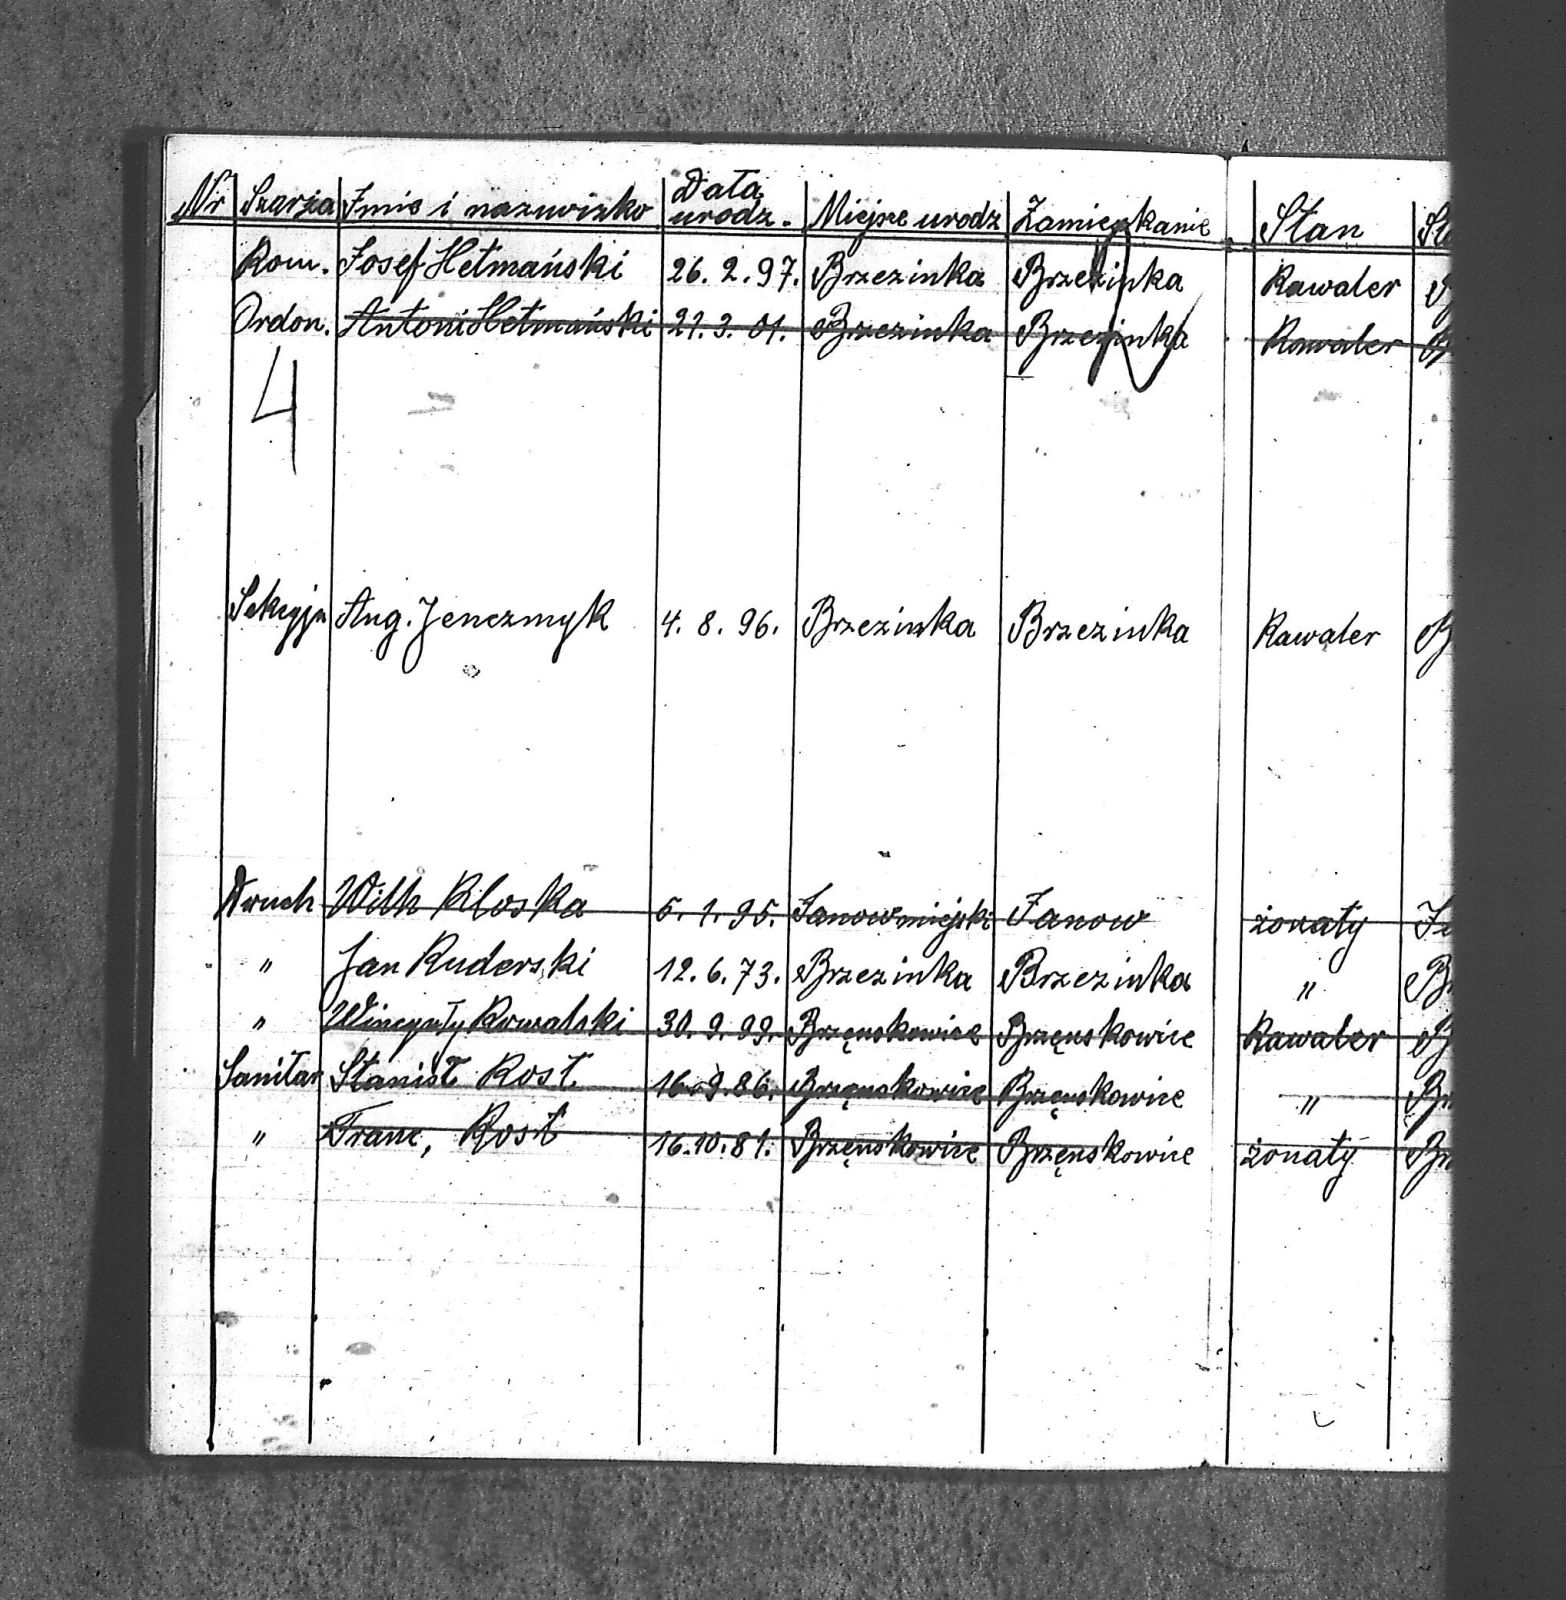 Nr Szarża Imie i nazwizko Data urodz. Miejsce urodz Zamieszkanie Stan
Kom. Josef Hetmański 26. 2. 97. Brzezinka Brzezinka Kawaler
Ordon. Antoni Hetmański 21. 3. 01. Brzezinka Brzezinka Kawaler
4
Sekcyjn Aug. Jenczmyk 4. 8. 96. Brzezinka Brzezinka Kawaler
Druch Wilh Kloska 5. 1. 95. Janow miejski Janow żonaty
" Jan Kuderski 12. 6. 73. Brzezinka Brzezinka "
" Wincynty Kowalski 30. 9. 99. Brzęnskowice Brzęnskowice Kawaler
Sanitar Stanisł Kost 16. 9. 86. Brzęnskowice Brzęnskowice "
" Franc, Kost 16. 10. 81. Brzęnskowice Brzęnskowice żonaty